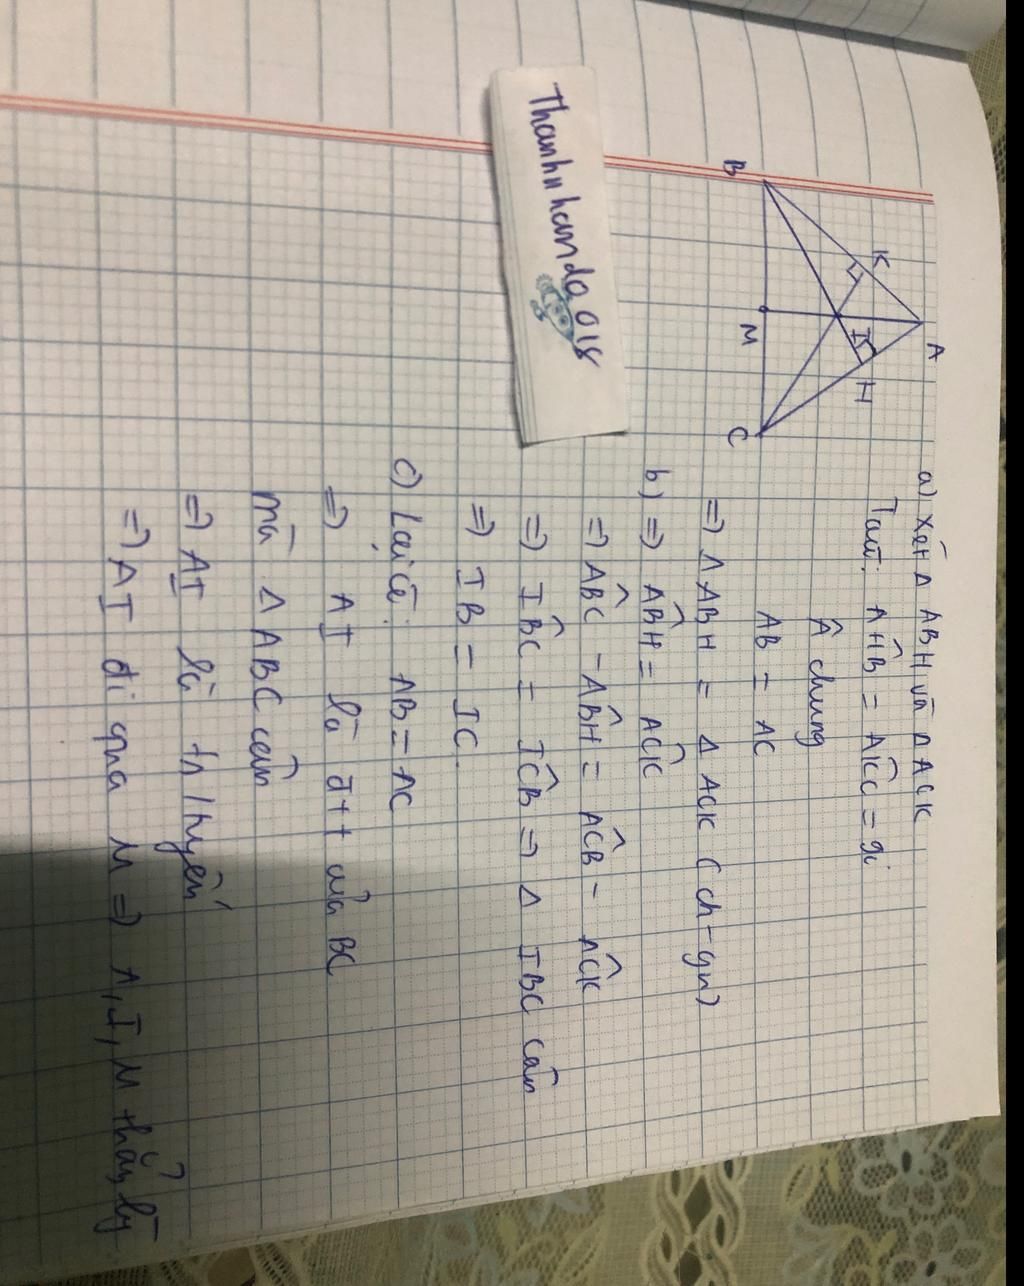 A
K
I
H
B
M
C
Thanhnhanda018
a) Xét Δ ABH và Δ ACK
Ta có: AĤB = AK̂C = 90
Â chung
AB = AC
=> Δ ABH = Δ ACK (ch-gn)
b) => AB̂H = AĈK
=> AB̂C - AB̂H = AĈB - AĈK
=> IB̂C = IĈB => Δ IBC cân
=> IB = IC.
c) Lại có: AB = AC
=> AI là đtt của BC
mà Δ ABC cân
=> AI là tr/tuyến
=> AI đi qua M => A, I, M thẳng